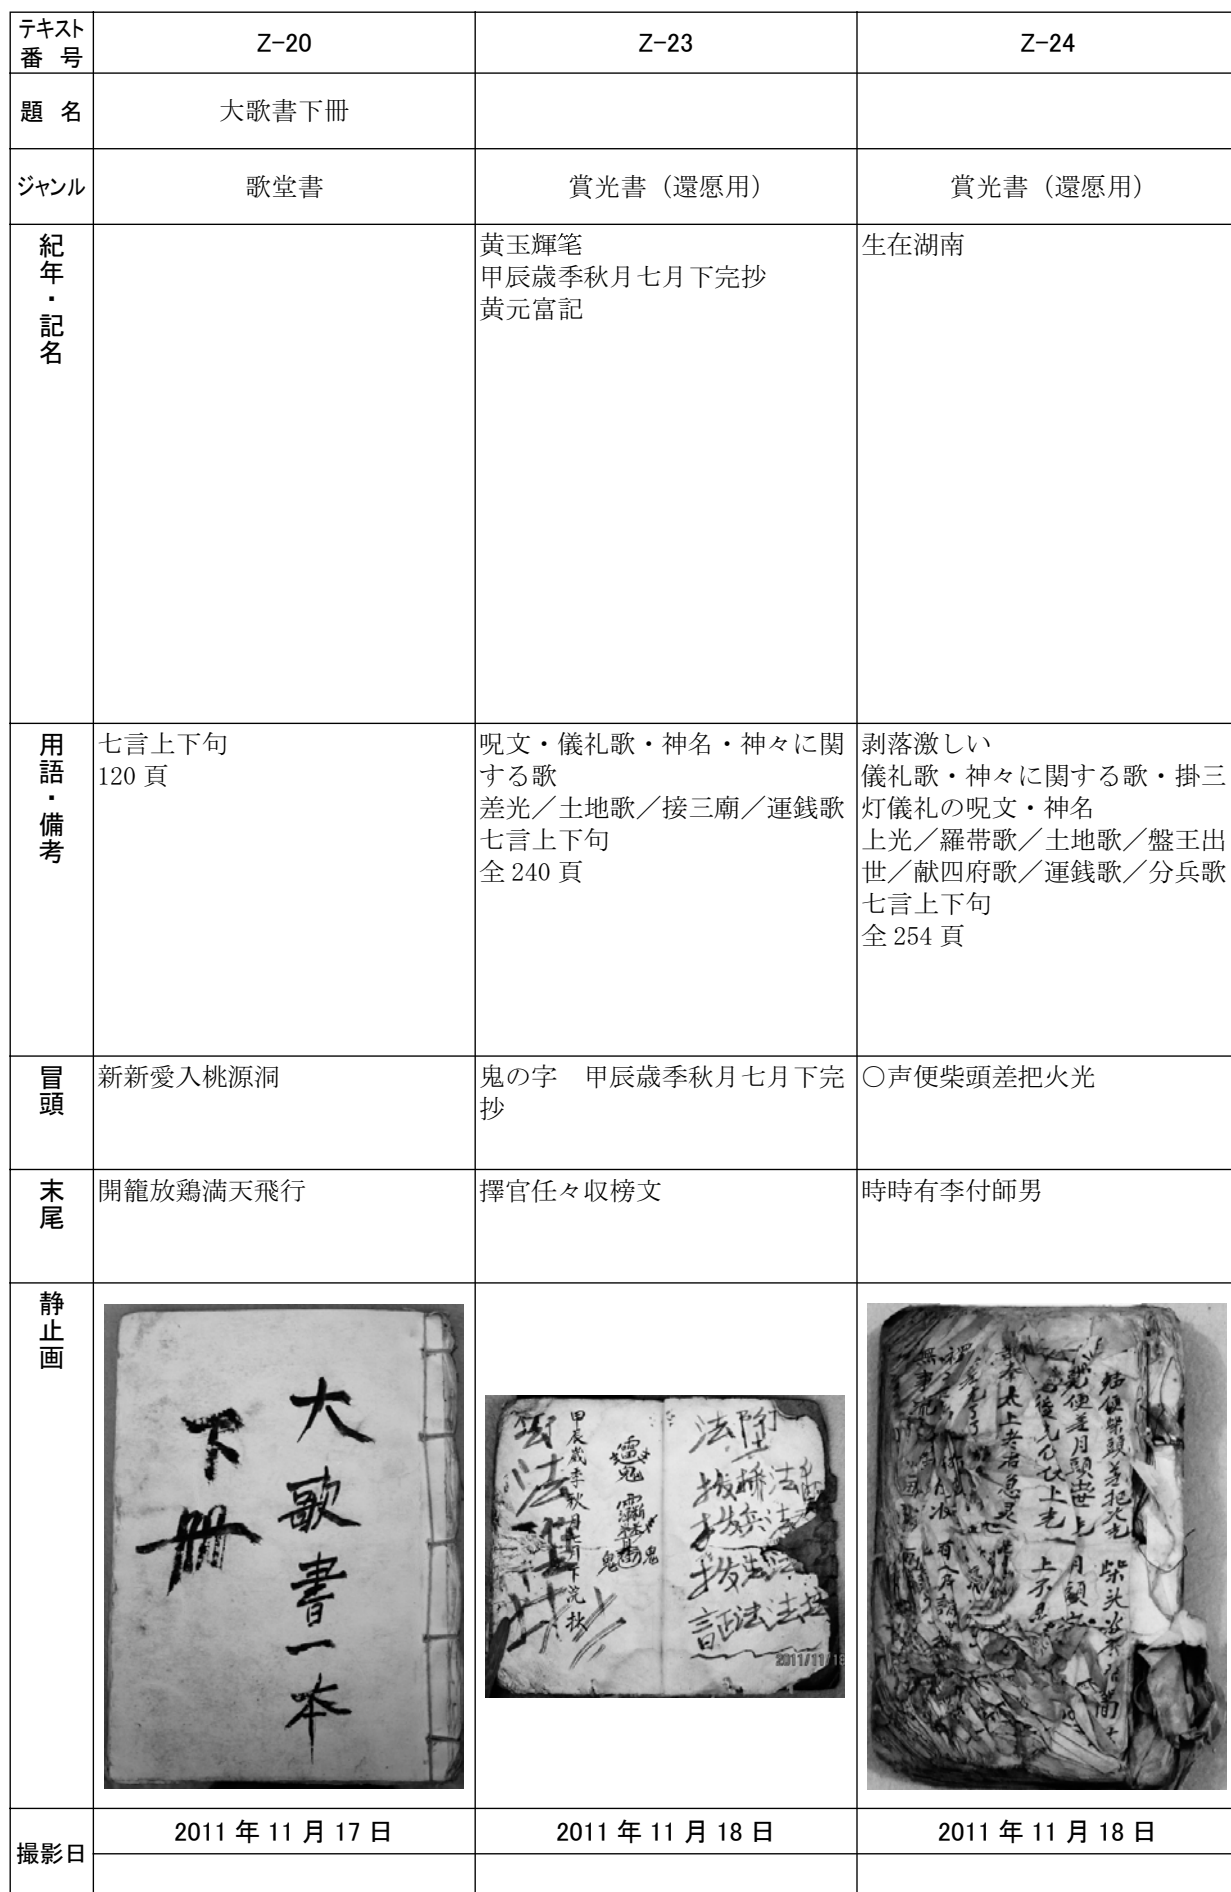 テキスト番号
Z-20
Z-23
Z-24
題 名
大歌書下冊
ジャンル
歌堂書
賞光書（還愿用）
賞光書（還愿用）
紀年・記名
黄玉輝笔
甲辰歳季秋月七月下完抄
黄元富記
生在湖南
用語・備考
七言上下句
120 頁
呪文・儀礼歌・神名・神々に関
する歌
差光／土地歌／接三廟／運銭歌
七言上下句
全 240 頁
剥落激しい
儀礼歌・神々に関する歌・掛三
灯儀礼の呪文・神名
上光／羅帯歌／土地歌／盤王出
世／献四府歌／運銭歌／分兵歌
七言上下句
全 254 頁
冒頭
新新愛入桃源洞
鬼の字　甲辰歳季秋月七月下完
抄
〇声便柴頭差把火光
末尾
開籠放鶏満天飛行
擇官任々収榜文
時時有李付師男
静止画
大歌書一本
下冊
甲辰歳季秋月七月下完抄
2011/11/18
撮影日
2011 年 11 月 17 日
2011 年 11 月 18 日
2011 年 11 月 18 日